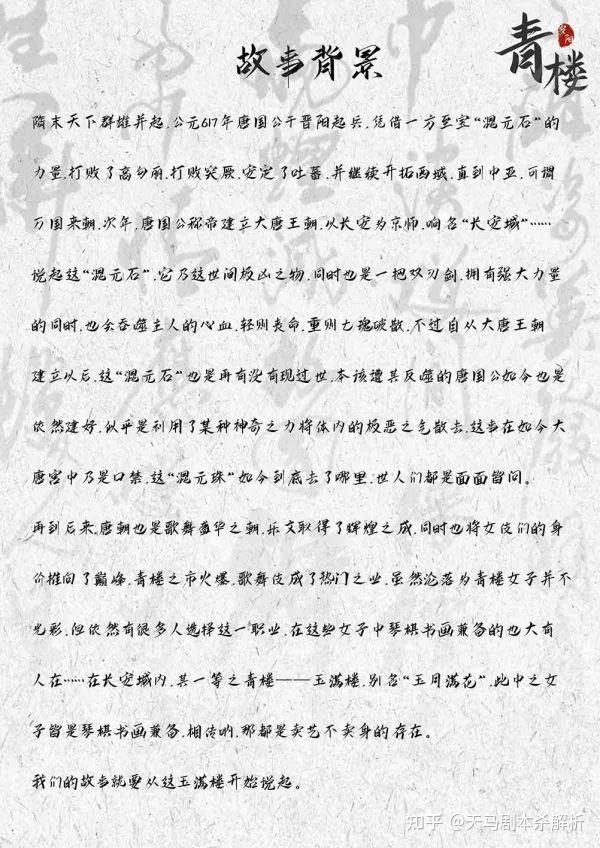 故事背景
青楼
隋末天下群雄并起,公元617年唐国公于晋阳起兵,凭借一方至宝“混元石”的
力量,打败了高句丽,打败突厥,安定了吐蕃,并继续开拓西域,直到中亚,可谓
万国来朝,次年,唐国公称帝建立大唐王朝,以长安为京师,响名“长安城”……
说起这“混元石”,它乃这世间极凶之物,同时也是一把双刃剑,拥有强大力量
的同时,也会吞噬主人的心血,轻则丧命,重则七魂破散,不过自从大唐王朝
建立以后,这“混元石”也是再有没有现过世,本该遭其反噬的唐国公如今也是
依然建好,似乎是利用了某种神奇之力将体内的极恶之气散去,这当在如今大
唐宫中乃是口禁,这“混元珠”如今到底去了哪里,世人们都是面面皆问。
再到后来,唐朝也是歌舞奢华之朝,乐文取得了辉煌之成,同时也将女伎们的身
价推向了巅峰,青楼之市火爆,歌舞伎成了热门之业,虽然沦落为青楼女子并不
光彩,但依然有很多人选择这一职业,在这些女子中琴棋书画兼备的也大有
人在……在长安城内,其一等之青楼——玉满楼,别名“玉月满花”,此中之女
子皆是琴棋书画兼备,相传呐,那都是卖艺不卖身的存在。
我们的故事就要从这玉满楼开始说起。
知乎 @天马剧本杀解析